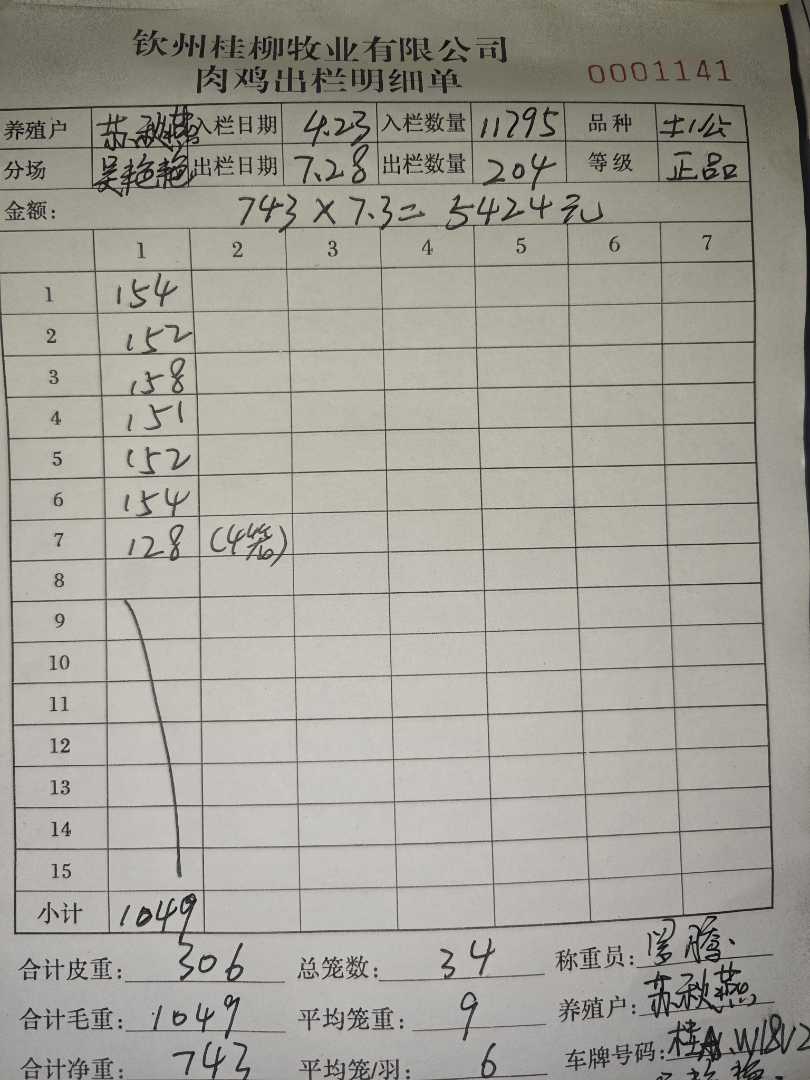 钦州桂柳牧业有限公司
肉鸡出栏明细单 0001141
养殖户 苏秋燕 入栏日期 4.23 入栏数量 11795 品种 土1公
分场 吴艳艳 出栏日期 7.28 出栏数量 204 等级 正品
金额: 743×7.3=5424元
1 2 3 4 5 6 7
1 154
2 152
3 158
4 151
5 152
6 154
7 128 (4笼)
8
9
10
11
12
13
14
15
小计 1049
合计皮重: 306 总笼数: 34 称重员:
合计毛重: 1049 平均笼重: 9 养殖户: 苏秋燕
合计净重: 743 平均笼/羽: 6 车牌号码: 桂A